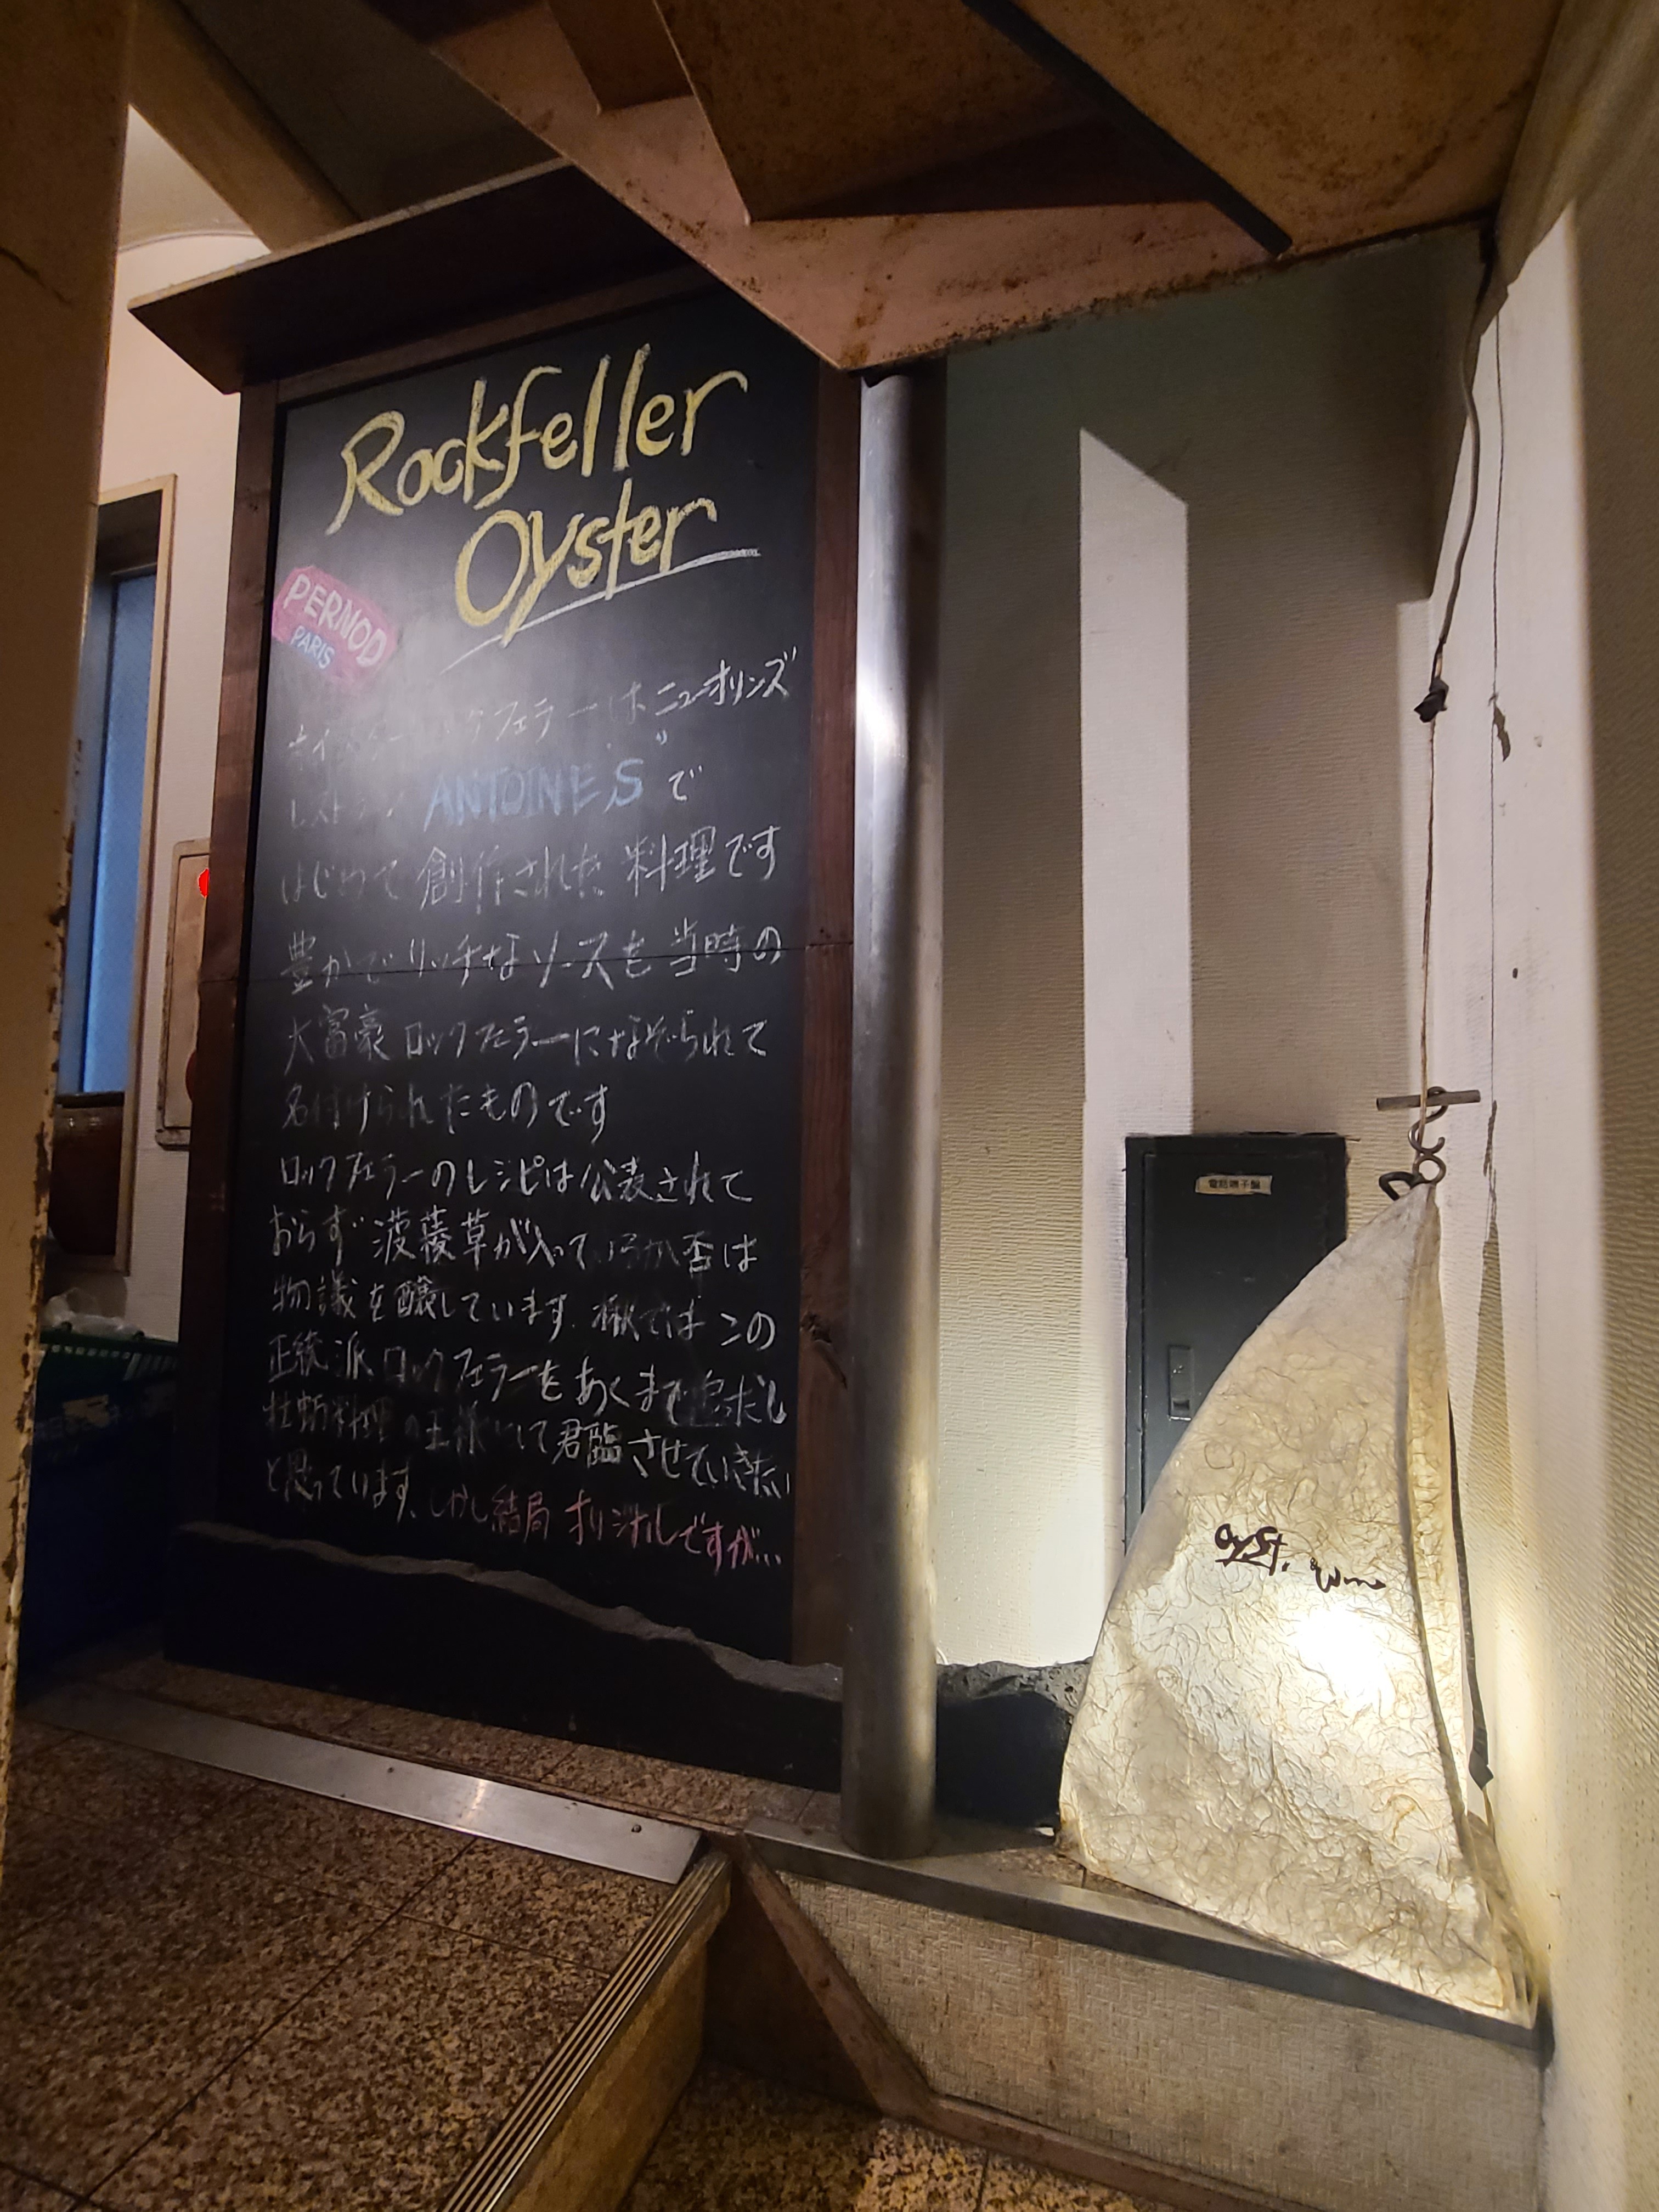 Rockfeller
Oyster
PERNOD
PARIS
オイスターロックフェラーは ニューオリンズ
レストラン "ANTOINE,S で
はじめて 創作された 料理です
豊かで リッチな ソースを 当時の
大富豪 ロックフェラーになぞられて
名付けられたものです
ロックフェラーのレシピは公表されて
おらず 菠薐草が入っているか否は
物議を醸しています. では この
正統派 ロックフェラーをあくまで 追求し
牡蛎料理の王様として君臨させていきたい
と思っています. しかし結局 オリジナルですが...
電話端子盤
Oyst.